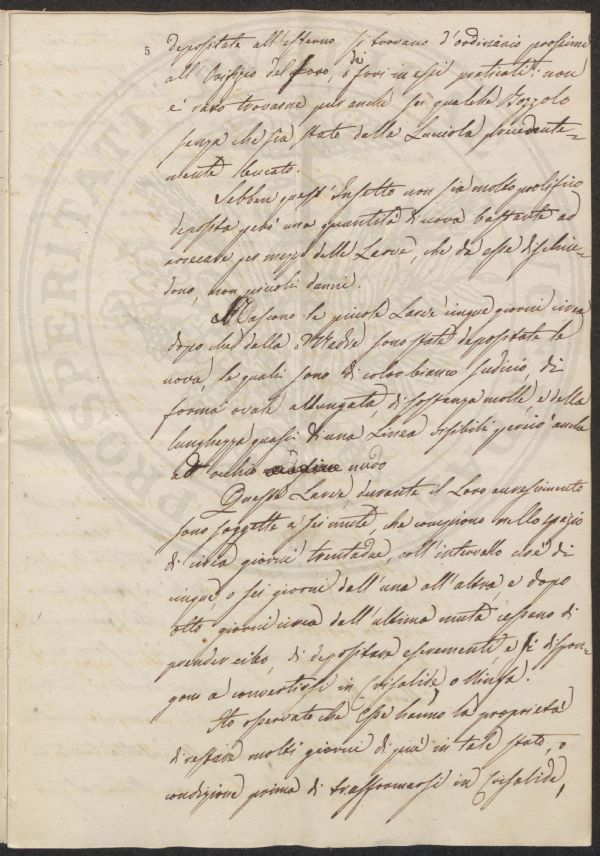 5
depositate all'esterno si trovano d'ordinario prossime
all'Orifizio del foro, o di fori in essi praticati: non
è raro trovarne pur anche sei qualche Bozzolo
senza che sia stato dalla Lucciola precedente=
mente bucato.
Sebben quest'Insetto non sia molto prolifico
deposita però una quantità di uova bastante ad
arrecare per mezzo delle Larve, che da esse dischiu=
dono, non piccoli danni.
Nascono le piccole Larve cinque giorni circa
dopo che dalla Madre sono state depositate le
uova, le quali sono di color bianco sudicio, di
forma ovale allungata di sostanza molle e della
lunghezza quasi di una Linea visibili perciò anche
ad occhio nudo
Queste Larve durante il Loro accrescimento
sono soggette a sei mute, che compiono nello spazio
di circa giorni trentadue, coll'intervallo cioè di
cinque, o sei giorni dall'una all'altra, e dopo
otto giorni circa dall'ultima muta cessano di
prender cibo, di depositare escrementi e si dispon=
gono a convertirsi in Crisalide, o Ninfa.
Ho osservato che Esse hanno la proprietà
di restare molti giorni di più in tale stato, o
condizione prima di trasformarsi in Crisalide,
PROSPERITATI